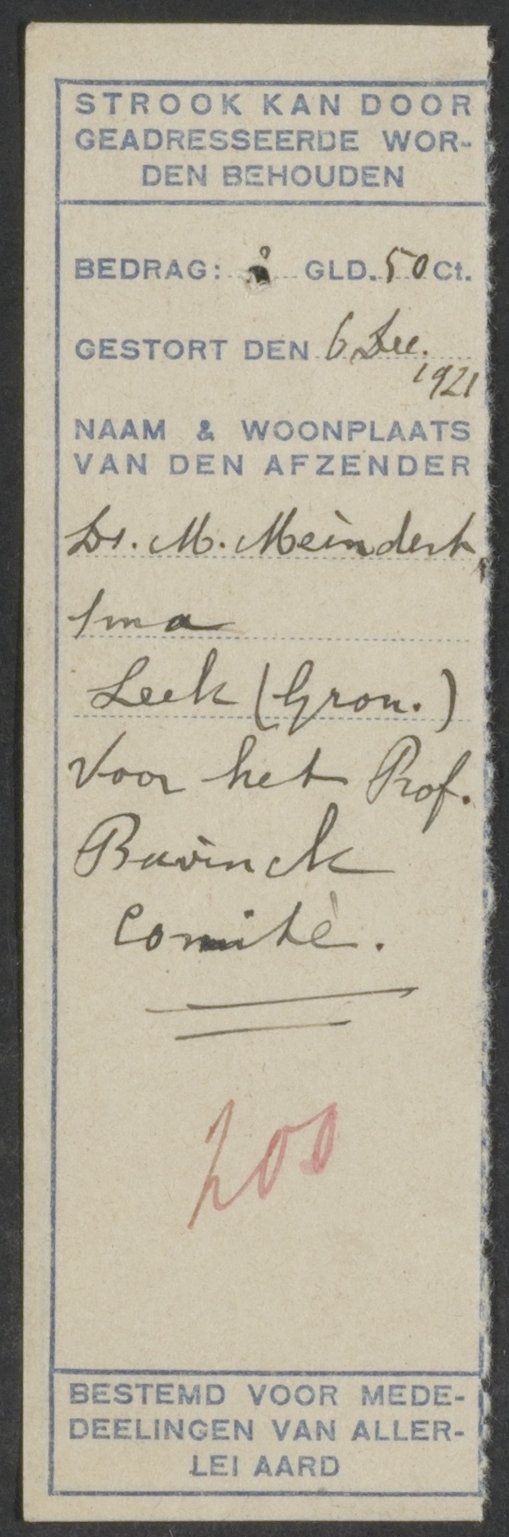 STROOK KAN DOOR
GEADRESSEERDE WOR-
DEN BEHOUDEN
BEDRAG: GLD. 50 Ct.
GESTORT DEN 6 Dec.
1921
NAAM & WOONPLAATS
VAN DEN AFZENDER
Dr. M. Meinderts
ma
Leek (Gron.)
Voor het Prof.
Bavinck
Comité.
200
BESTEMD VOOR MEDE-
DEELINGEN VAN ALLER-
LEI AARD